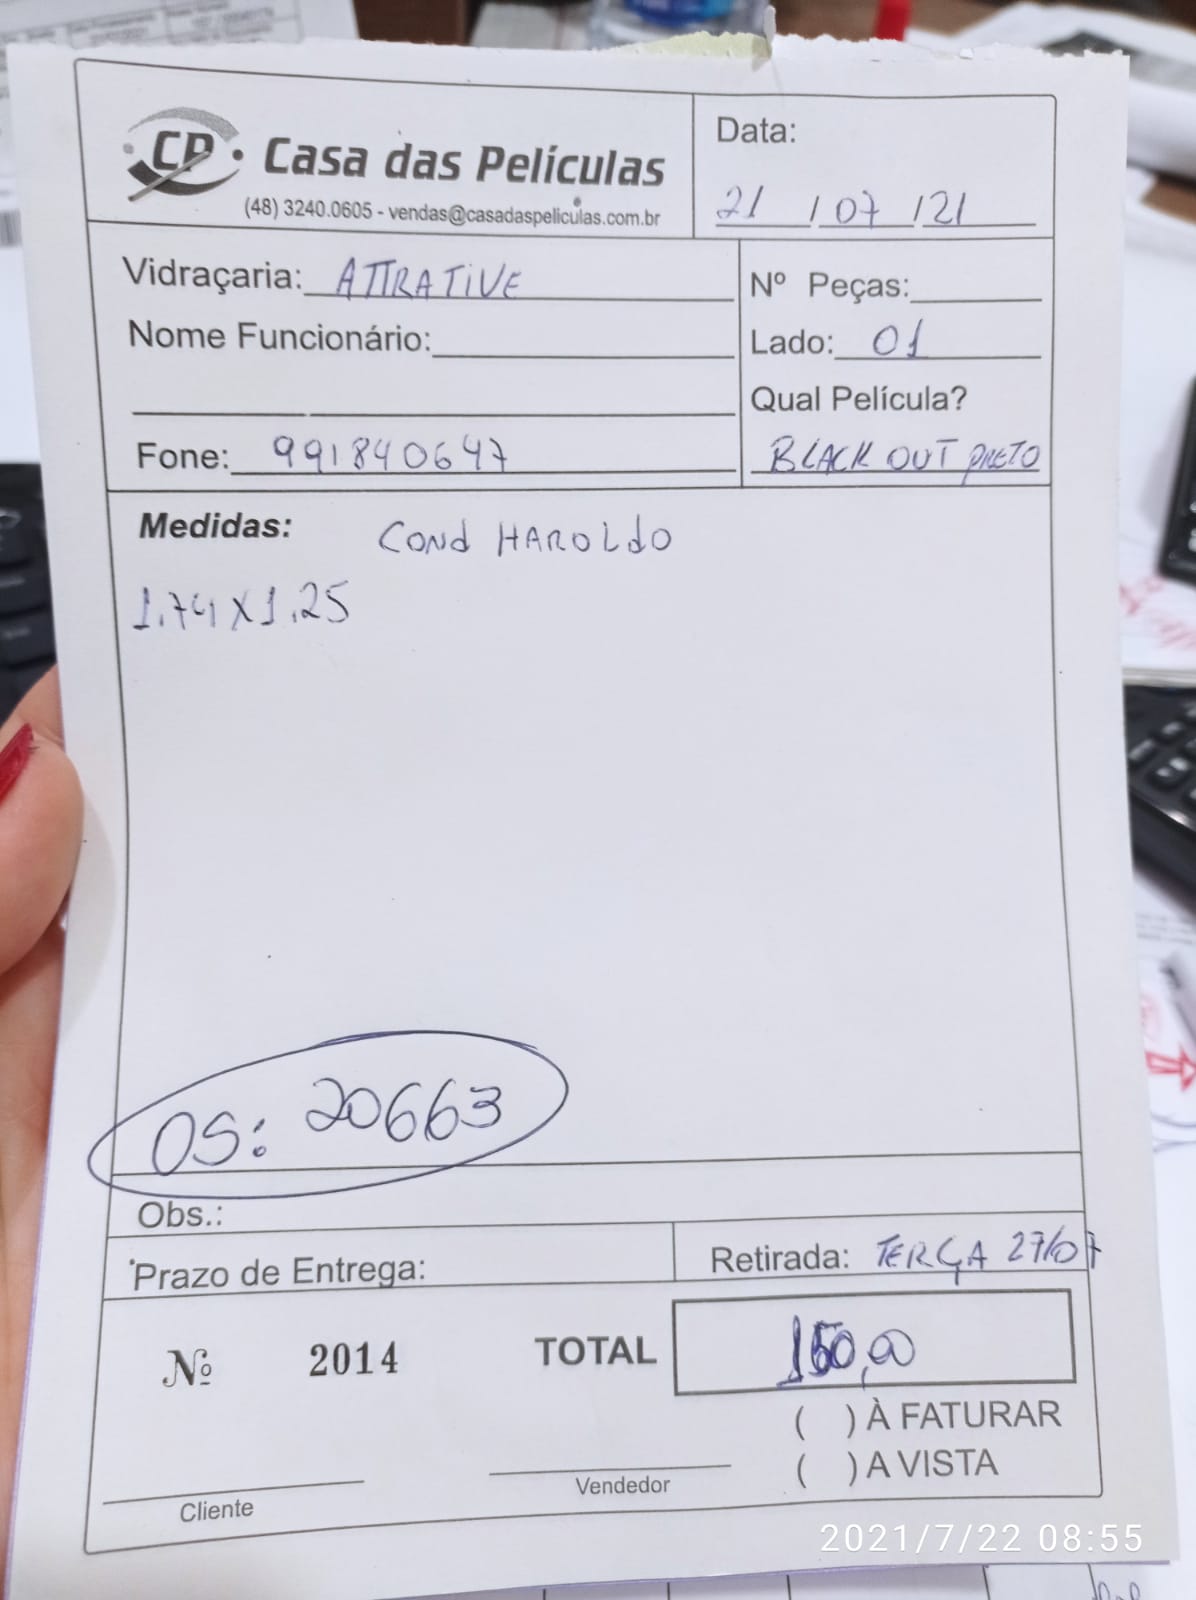 CP Casa das Películas
(48) 3240.0605 - vendas@casadaspeliculas.com.br
Data:
21 / 07 / 21
Vidraçaria: ATTRATIVE
Nº Peças:
Nome Funcionário:
Lado: 01
Qual Película?
Fone: 991840647
BLACK OUT PRETO
Medidas: COND HAROLDO
1.74 X 1.25
OS: 20663
Obs.:
Prazo de Entrega:
Retirada: TERÇA 27/07
Nº 2014 TOTAL 150,00
( ) À FATURAR
( ) A VISTA
Cliente
Vendedor
2021/7/22 08:55